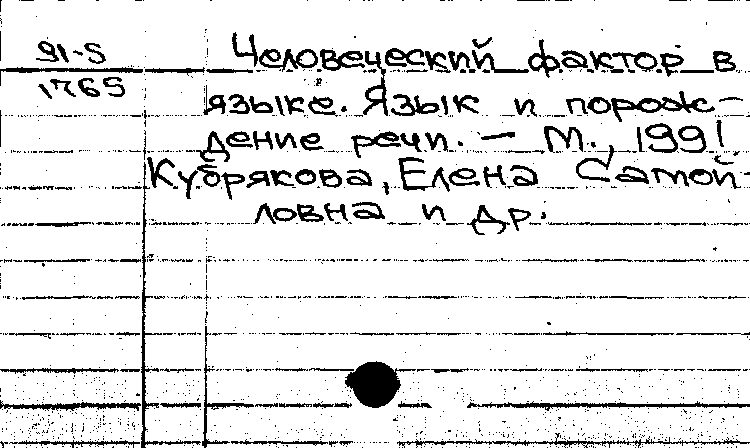 91-5
1765
Человеческий фактор в
языке. Язык и порож-
дение речи. — М., 1991
Кубрякова, Елена Самой-
ловна и др.